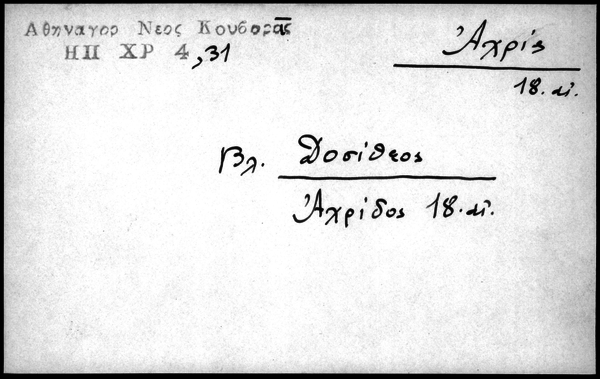 Αθηναγορ Νεος Κουβαρᾶς
ΗΠ ΧΡ 4,31
Ἀχρίς
18. αἰ.
Βλ. Δοσίθεος
Ἀχρίδος 18. αἰ.